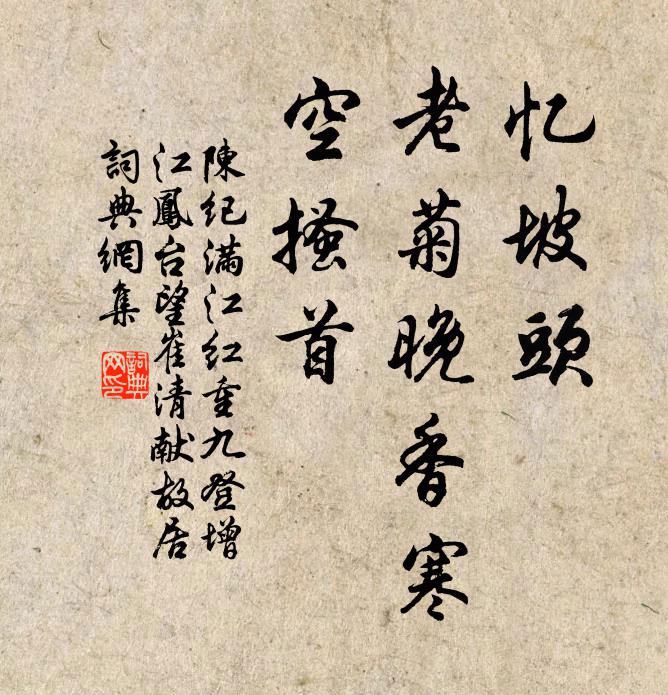 忆坡頭
老菊晚香寒
空搔首
陳纪滿江红重九登增
江鳳台望崔清献故居
詞典網集
詞典
网印